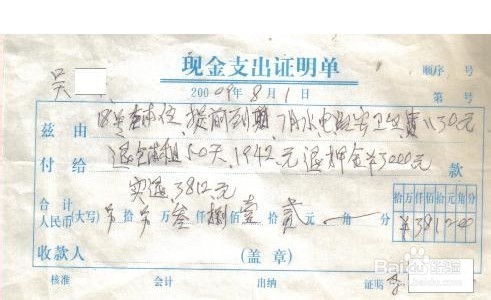 现金支出证明单 顺序 号
吴
2009年8月1日 第 号
兹由 提前到期,7月水电 卫生费1130元
付给 退 租50天,1942元 退押金¥3000元 款
实退3812元
十万仟佰十元角分
合计
人民币(大写) 拾 万 叁仟捌佰壹拾贰元 角 分 ¥381200
收款人 (盖章)
核准 会计 出纳 证明
Baidu经验